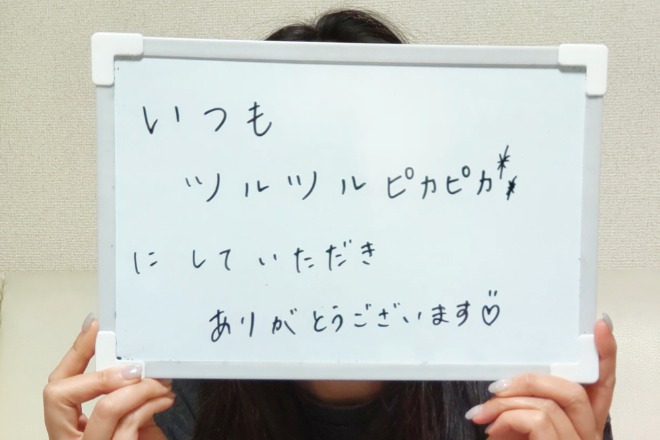 いつも
ツルツルピカピカ
にしていただき
ありがとうございます♡